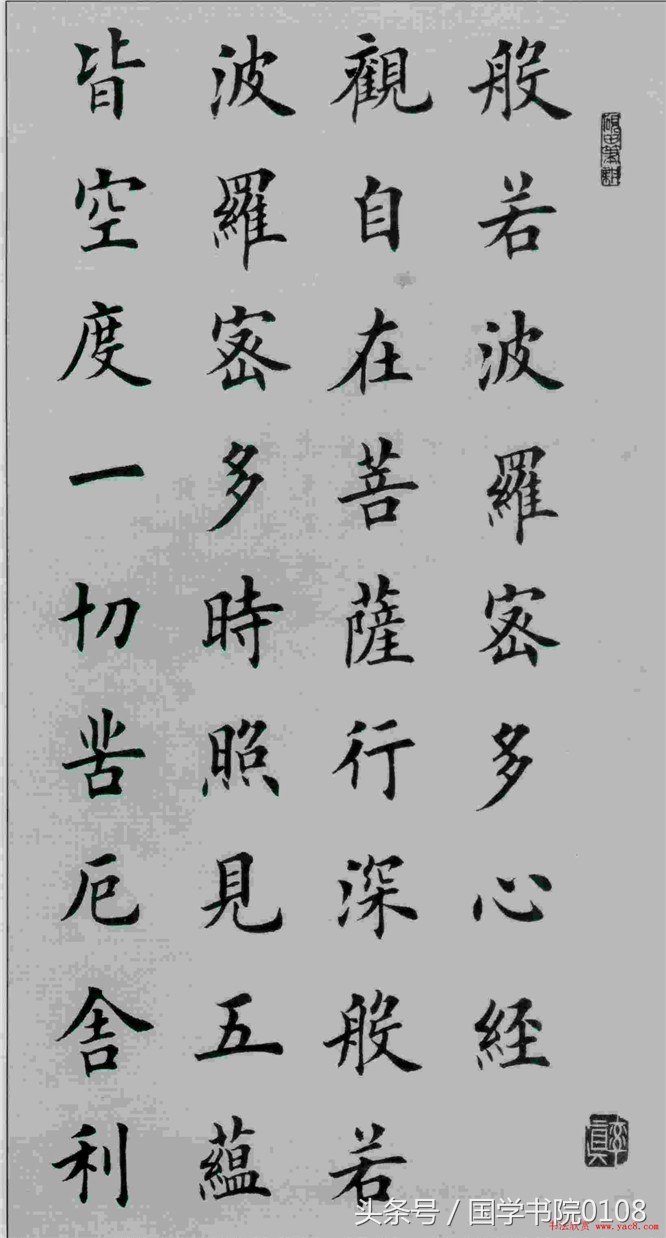 般若波羅蜜多心經
觀自在菩薩行深般若
波羅蜜多時照見五蘊
皆空度一切苦厄舍利
率真
头条号 / 国学书院0108
书法欣赏 www.yac8.com